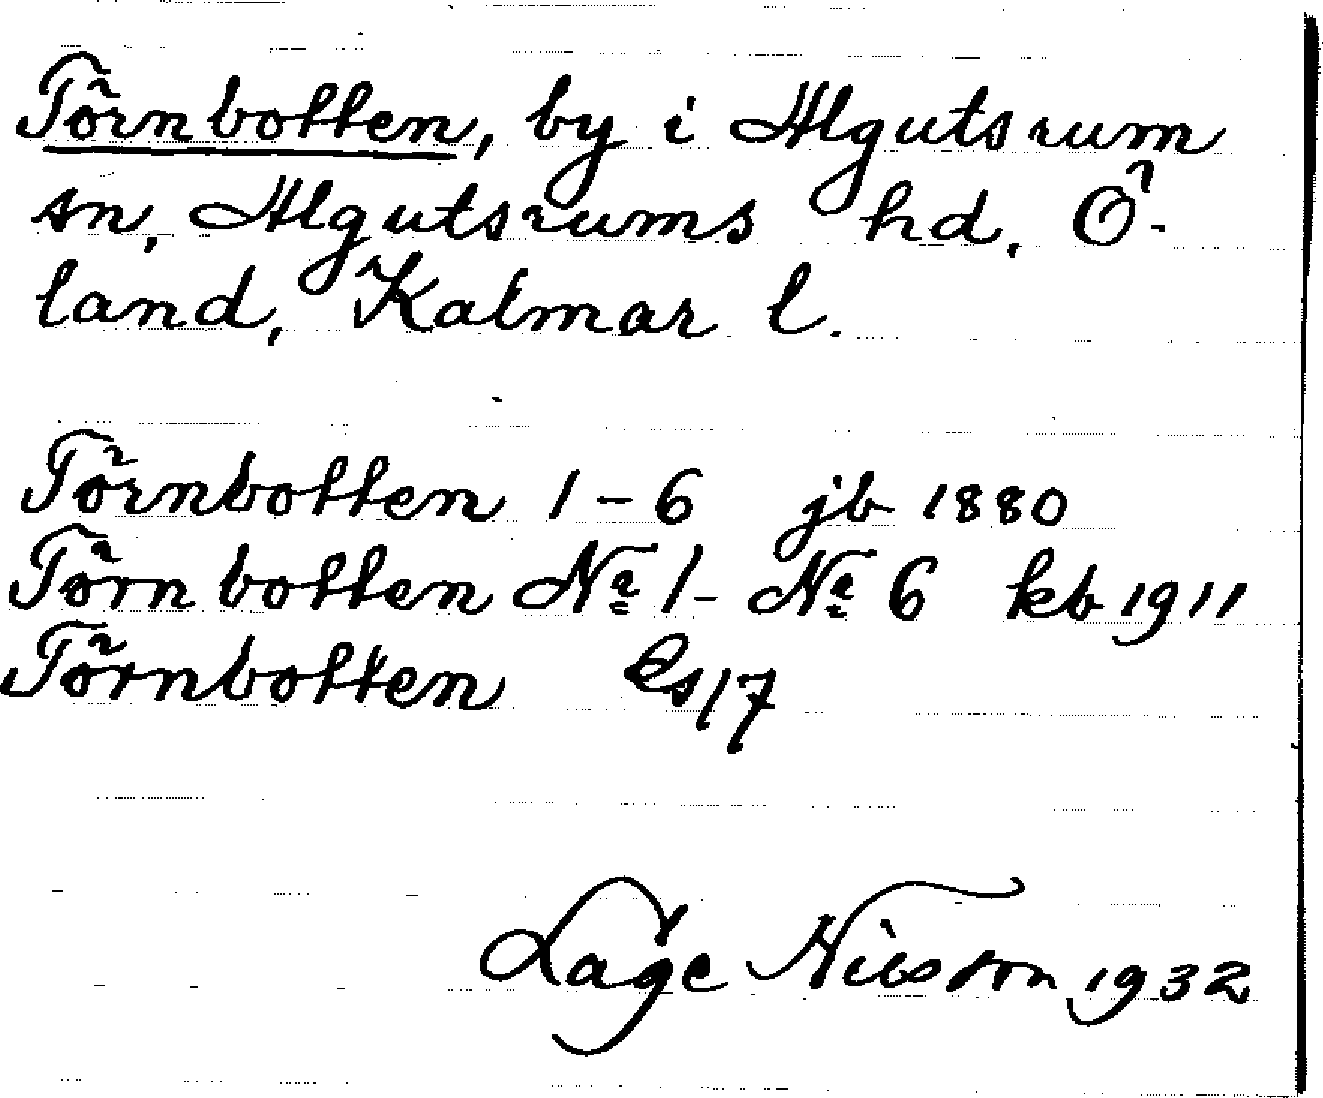 Törnbotten, by i Algutsrum
sn, Algutsrums hd, Ö-
land, Kalmar l.
Törnbotten 1-6 jb 1880
Törnbotten No 1- No 6 kb 1911
Törnbotten Es 17
Låge Nilsson 1932